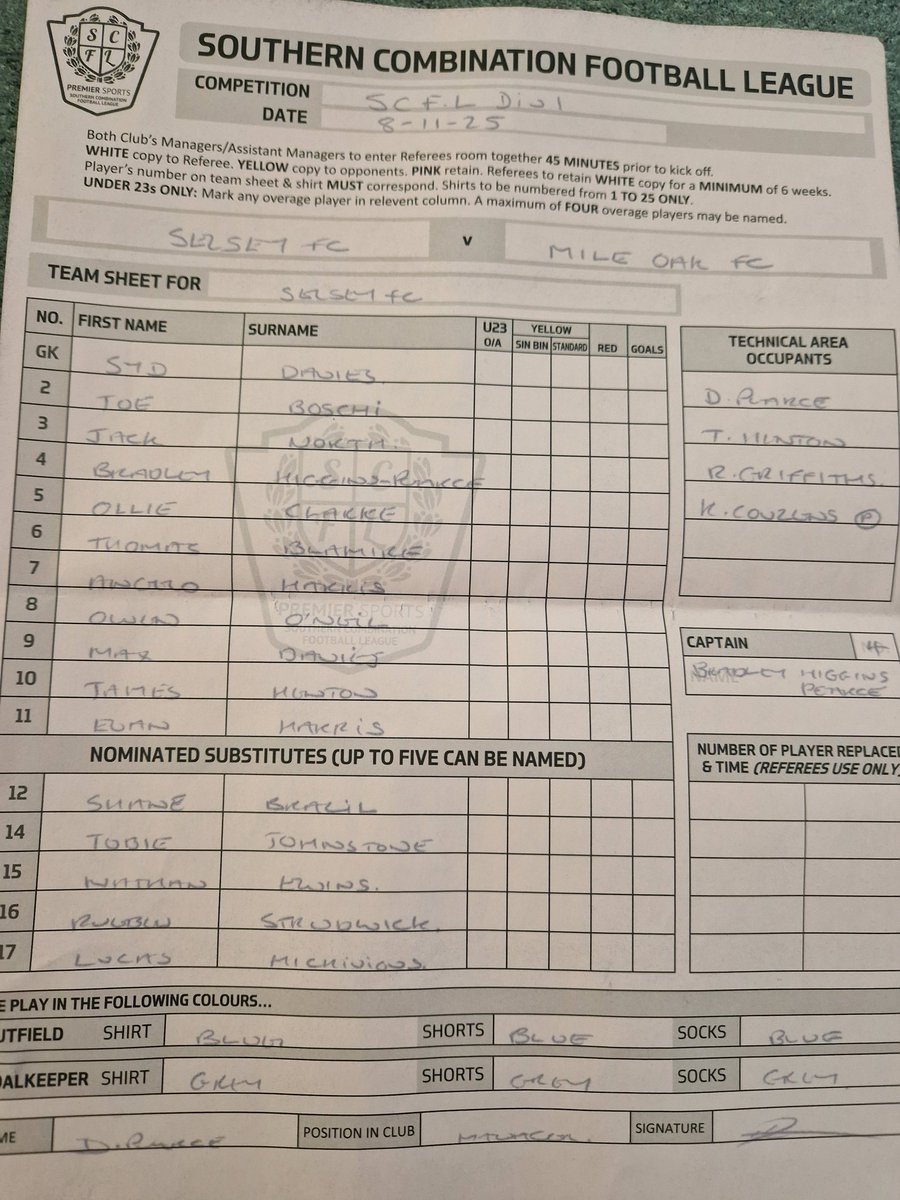 S C
F L
PREMIER SPORTS
SOUTHERN COMBINATION
FOOTBALL LEAGUE
SOUTHERN COMBINATION FOOTBALL LEAGUE
COMPETITION S.C.F.L Div 1
DATE 8-11-25
Both Club's Managers/Assistant Managers to enter Referees room together 45 MINUTES prior to kick off.
WHITE copy to Referee. YELLOW copy to opponents. PINK retain. Referees to retain WHITE copy for a MINIMUM of 6 weeks.
Player's number on team sheet & shirt MUST correspond. Shirts to be numbered from 1 TO 25 ONLY.
UNDER 23s ONLY: Mark any overage player in relevent column. A maximum of FOUR overage players may be named.
SELSEY FC v MILE OAK FC
TEAM SHEET FOR SELSEY FC
NO. FIRST NAME SURNAME U23 O/A YELLOW SIN BIN STANDARD RED GOALS
GK SYD DAVIES
2 JOE BOSCHI
3 JACK NORTH
4 BRADLEY HIGGINS-PEARCE
5 OLLIE CLARKE
6 THOMAS BLAMIRE
7 ANGELO HARRIS
8 OWEN O'NEIL
9 MAX DAVIES
10 JAMES HUNTON
11 EUAN HARRIS
PREMIER SPORTS
SOUTHERN COMBINATION
FOOTBALL LEAGUE
TECHNICAL AREA
OCCUPANTS
D. PEARCE
T. HUNTON
R. GRIFFITHS.
K. COUZENS P
CAPTAIN 4
NAME BRADLEY HIGGINS
PEARCE
NOMINATED SUBSTITUTES (UP TO FIVE CAN BE NAMED)
12 SHANE BRAZIL
14 TOBIE JOHNSTONE
15 NATHAN
16 RUEBEN STRUDWICK
17 LUCAS
NUMBER OF PLAYER REPLACED
& TIME (REFEREES USE ONLY)
E PLAY IN THE FOLLOWING COLOURS...
UTFIELD SHIRT BLUE SHORTS BLUE SOCKS BLUE
OALKEEPER SHIRT GREY SHORTS GREY SOCKS GREY
ME D. PEARCE POSITION IN CLUB MANAGER SIGNATURE